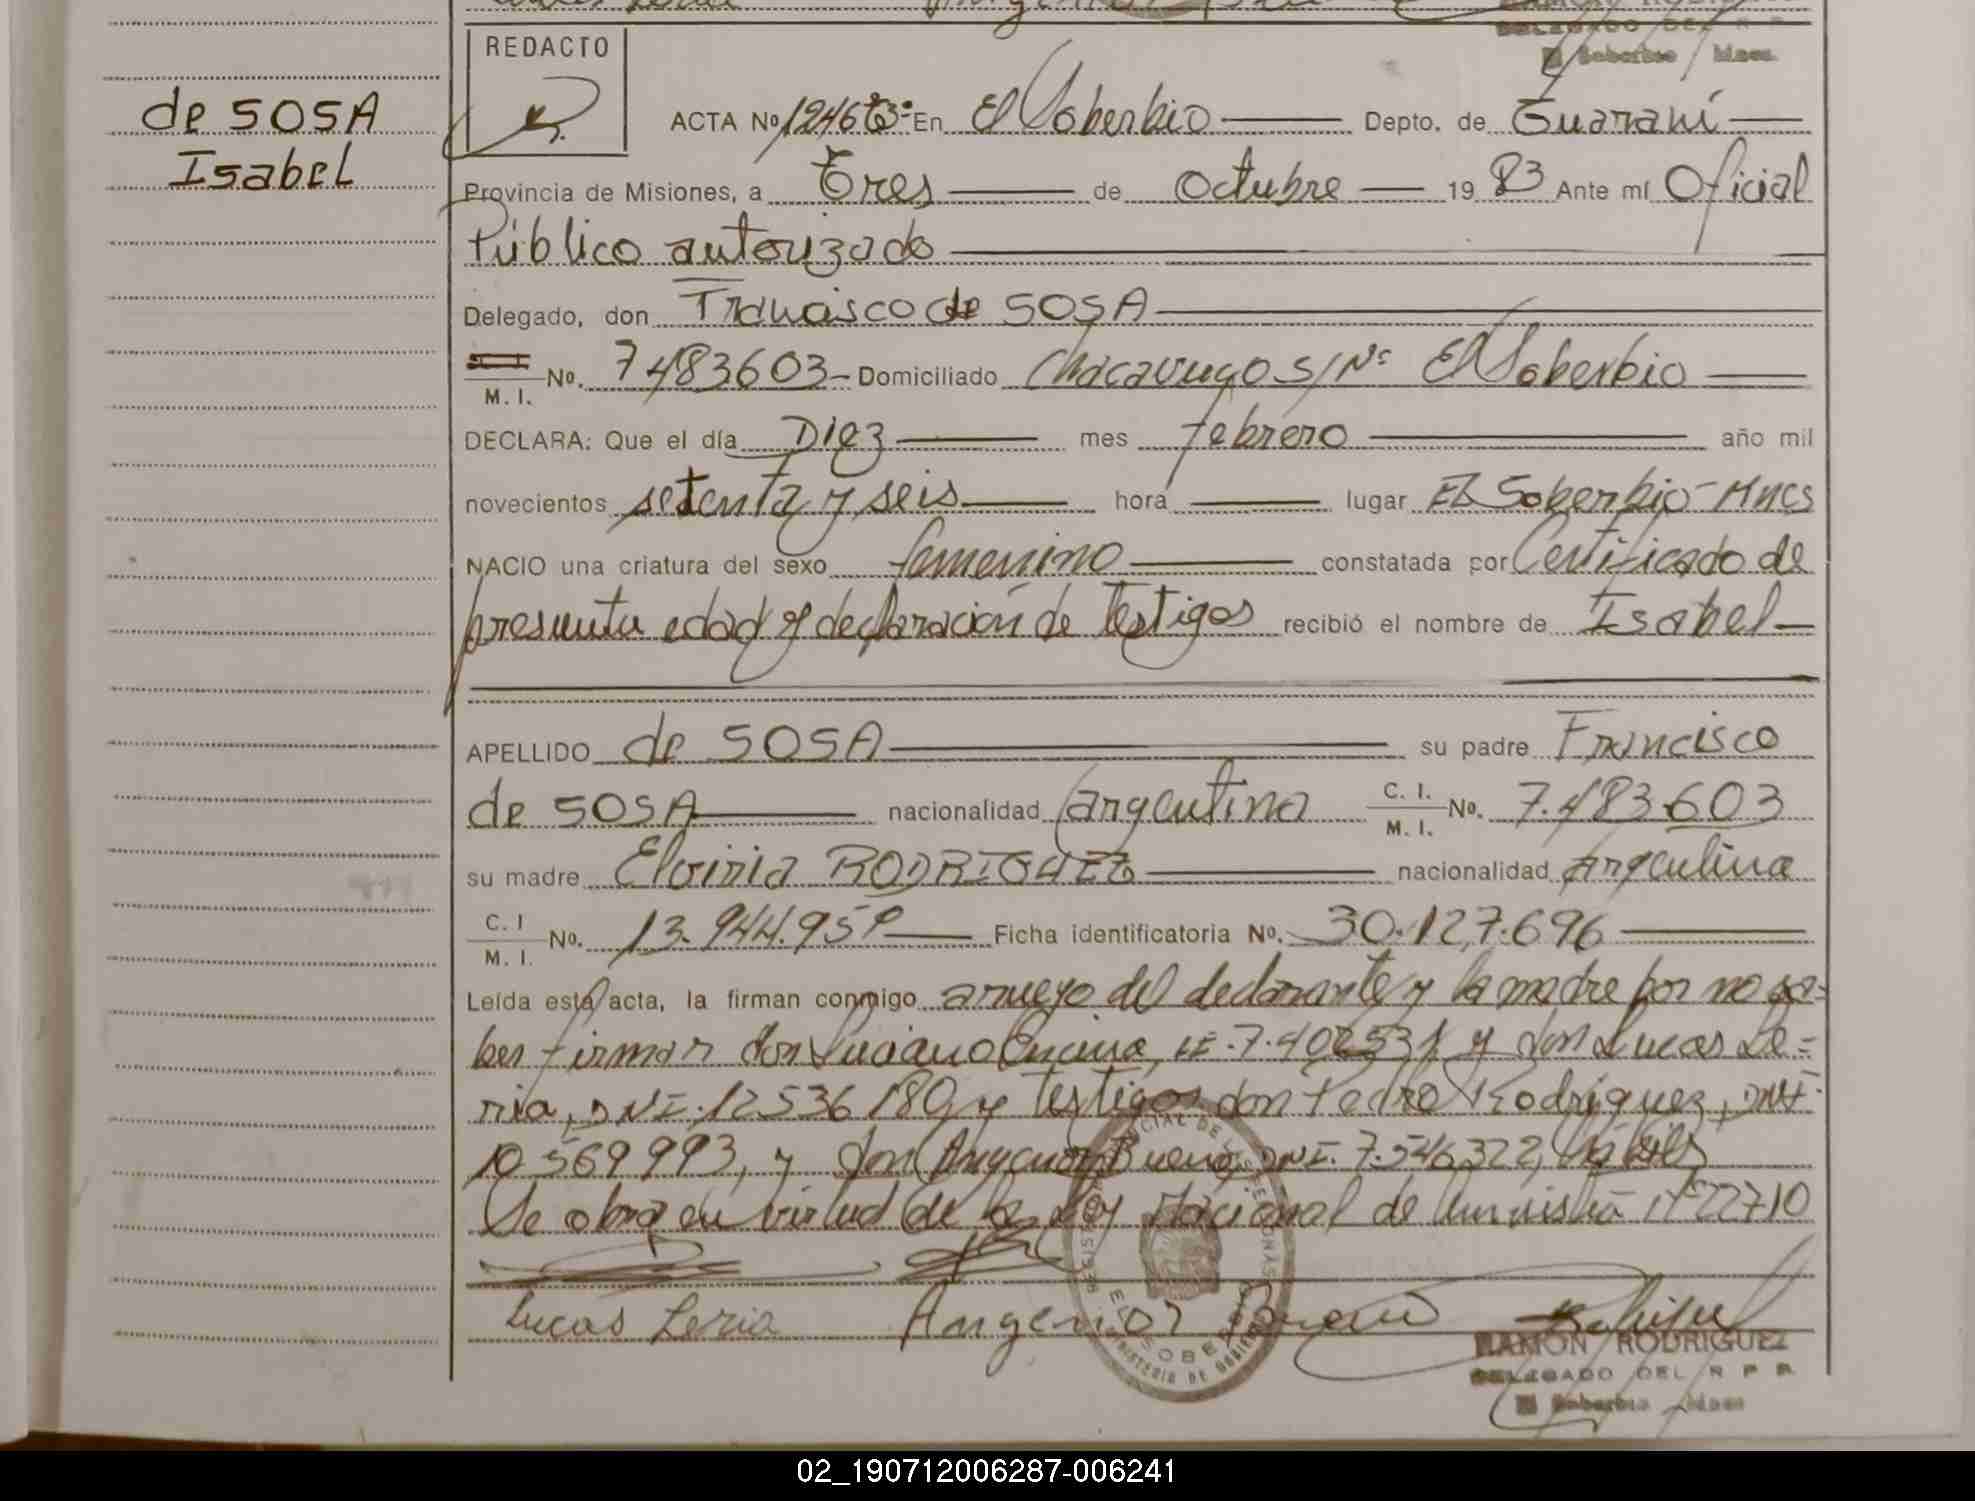 REDACTO
de SOSA
Isabel
ACTA Nº En El Soberbio Depto. de Guaraní
Provincia de Misiones, a tres de octubre 19 83 Ante mí Oficial
Público autorizado
Delegado, don Francisco de SOSA
M. I. No. 7483603- Domiciliado S/Nº El Soberbio
DECLARA: Que el día Diez mes febrero año mil
novecientos setenta y seis hora lugar El Soberbio-Mnes
NACIO una criatura del sexo femenino constatada por Certificado de
presunta edad y declaración de testigos recibió el nombre de Isabel
APELLIDO de SOSA su padre Francisco
de SOSA nacionalidad argentina C. I. M. I. No. 7.483.603
su madre RODRIGUEZ nacionalidad argentina
C. I M. I. No. 13.944.959 Ficha identificatoria No. 30.127.696
Leída esta acta, la firman conmigo a ruego del declarante y la madre por no sa-
ber firmar don Luciano Encina, y don Lucas Le-
ria, DNI. 12536180 y testigos don Pedro Rodriguez, DNI
10.569.993, y don Bueno, DNI. 7.546.322, hábiles
Se obra en virtud de la Ley Nacional de Amnistía Nº 22710
Lucas Leria
RAMON RODRIGUEZ
DELEGADO DEL R P P
El Soberbio Mnes
02_190712006287-006241